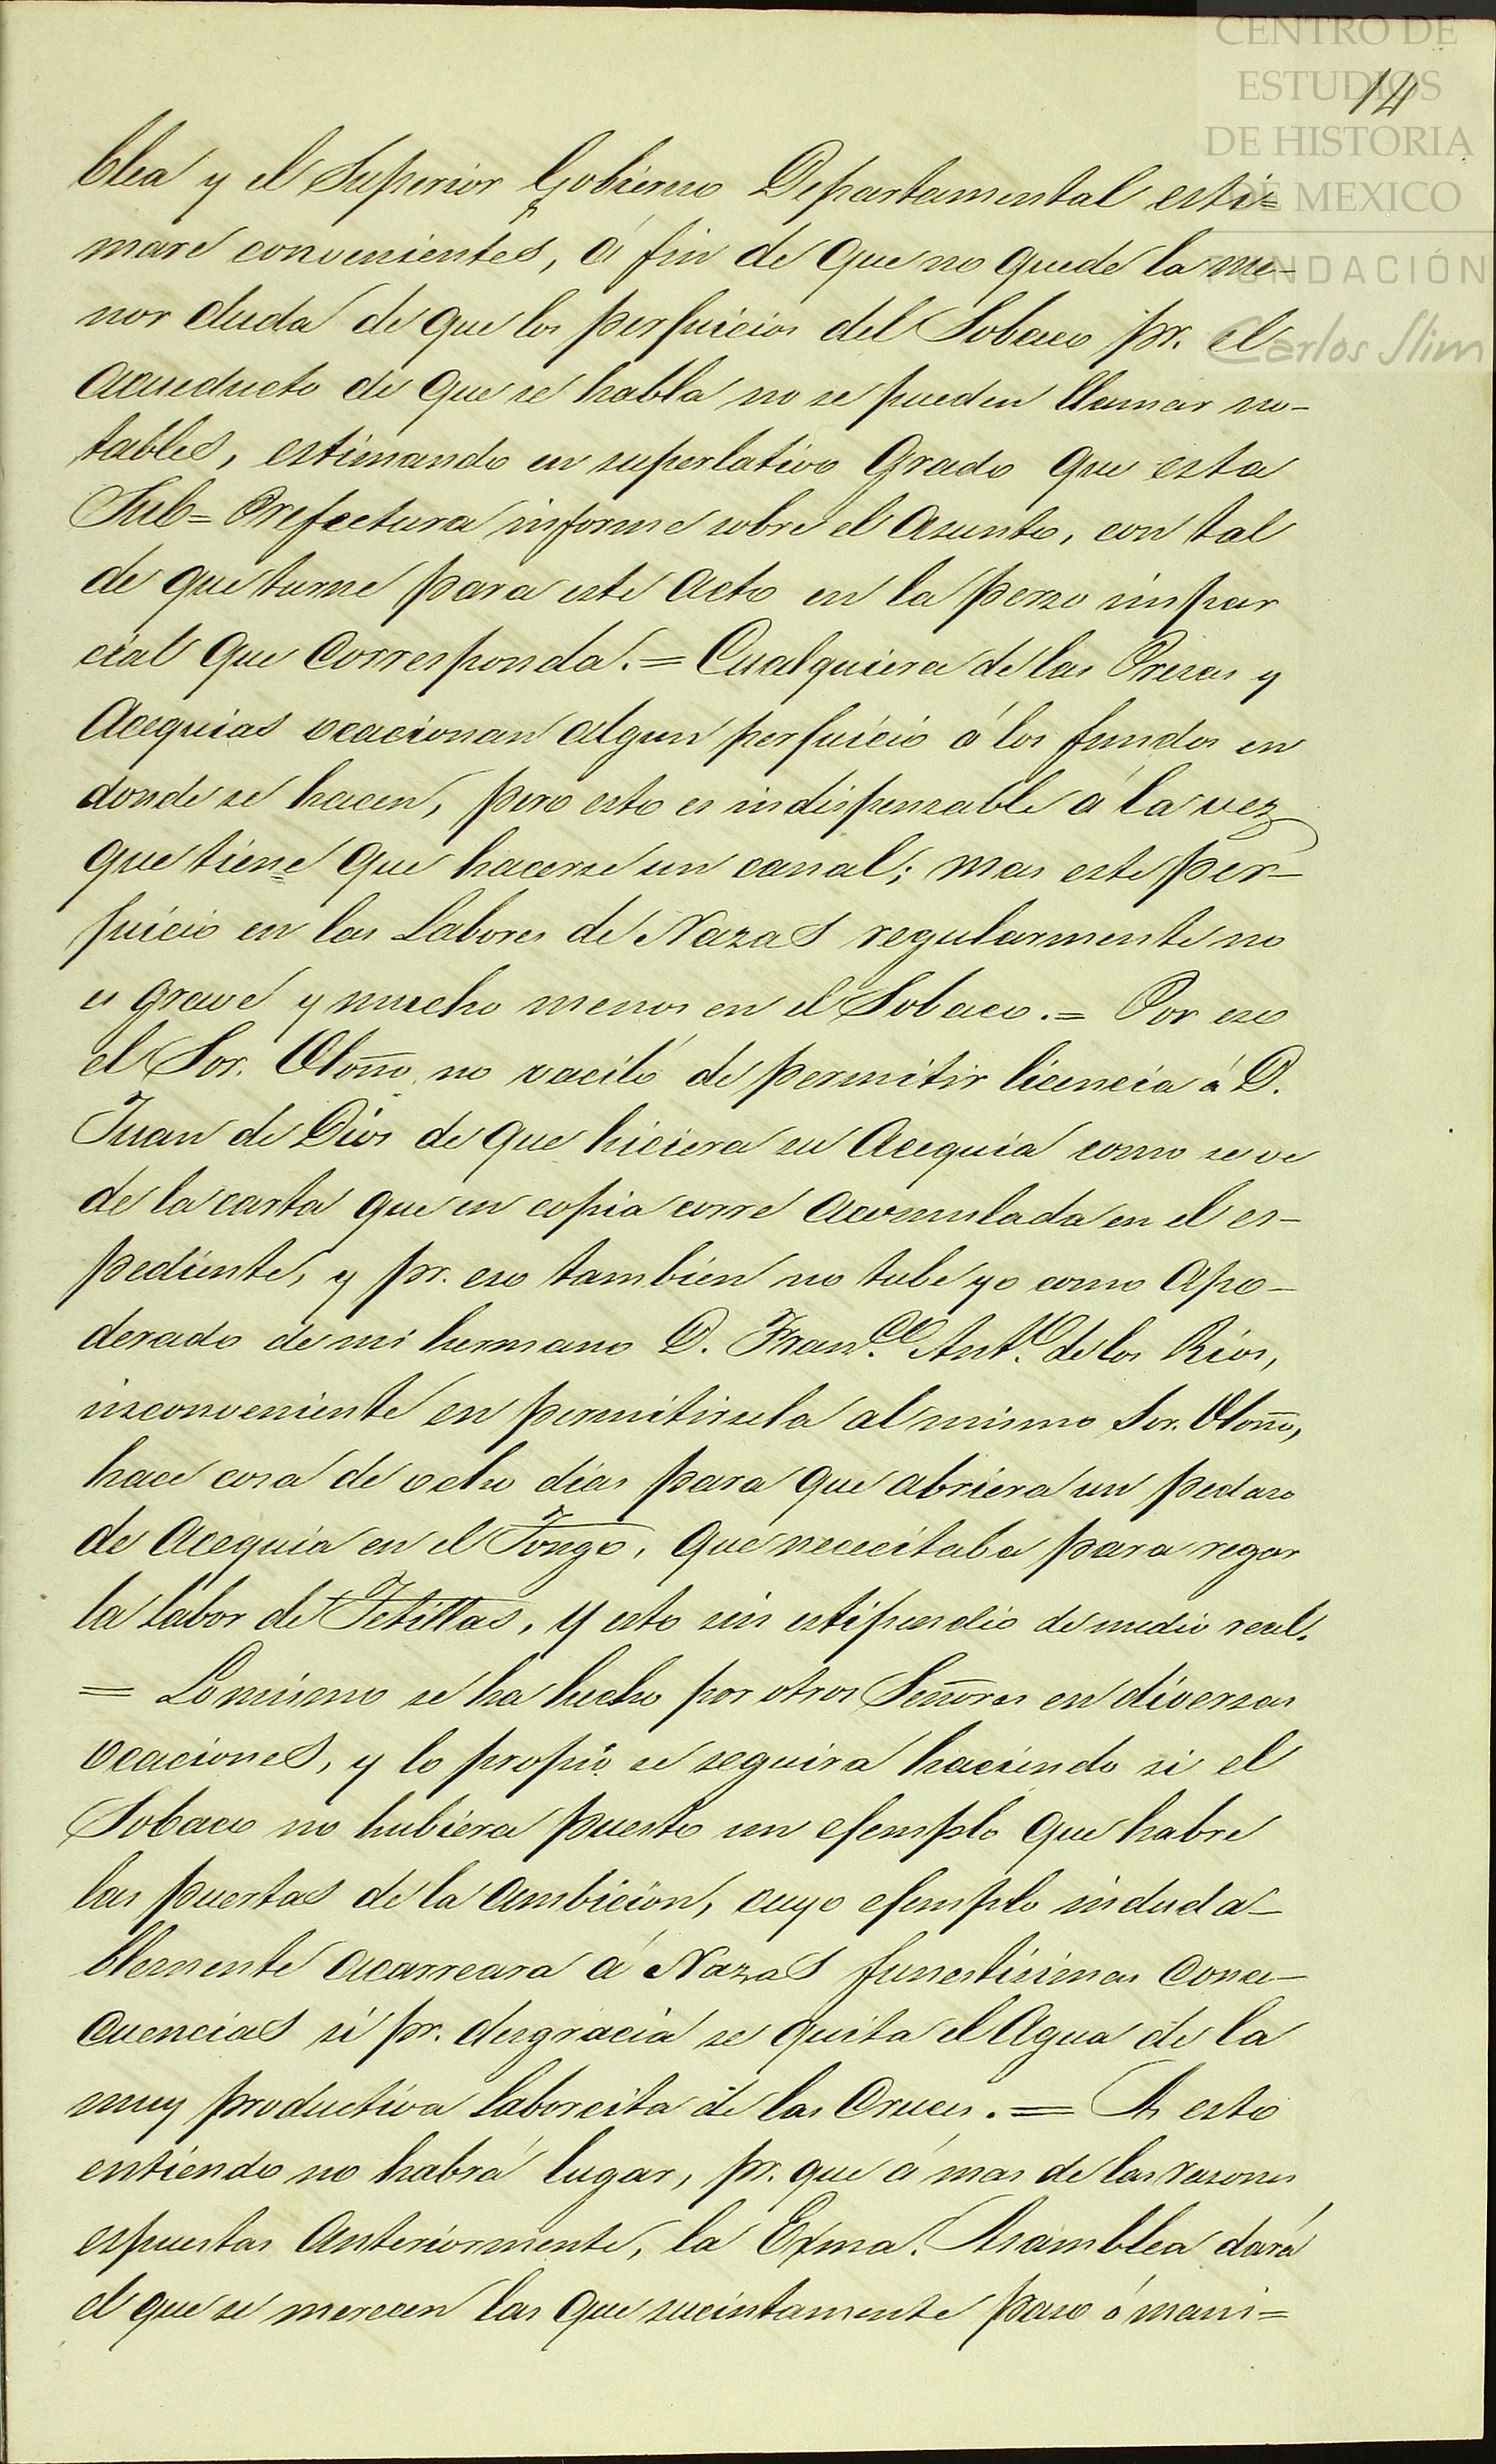 CENTRO DE
ESTUDIOS
DE HISTORIA
DE MEXICO
FUNDACIÓN
Carlos Slim
14
blea y el Superior Gobierno Departamental esti=
mare convenientes, á fin de que no quede la me-
nor duda de que los perjuicios del Sobaco pr. el
acueducto de que se habla no se pueden llamar no-
tables, estimando en superlativo grado que esta
Sub=Prefectura informe sobre el asunto, con tal
de que turne para este acto en la perso impar
cial que corresponda.= Cualquiera de las Presas y
Acequias ocacionan algun perjuicio á los fundos en
donde se hacen, pero esto es indispensable á la vez
que tiene que hacerse un canal; mas este per-
juicio en las Labores de Nazas regularmente no
es grave y mucho menos en el Sobaco.= Por eso
el Sor. no vaciló de permitir licencia á D.
Juan de Dios de que hiciera su Acequia como se ve
de la carta que en copia corre acomulada en el es-
pediente, y pr. eso tambien no tube yo como apo-
derado de mi hermano D. Franco. Anto. de los Rios,
inconveniente en permitirsela al mismo Sor.
hace cosa de ocho dias para que abriera un pedaso
de Acequia en el Tongo, que nececitaba para regar
la labor de Tetillas, y esto sin estipendio de medio real.
= Lo mismo se ha hecho por otros Señores en diversas
ocaciones, y lo propio se seguira haciendo si el
Sobaco no hubiera puesto un ejemplo que habre
las puertas de la ambicion, cuyo ejemplo induda-
blemente acarreara á Nazas funestisimas conse-
cuencias si pr. desgracia se quita el Agua de la
muy productiva laborcita de las Cruces.= A esto
entiendo no habrá lugar, pr. que á mas de las rasones
espuestas anteriormente, la Exma. Asamblea dará
el que se merecen las que sucintamente paso á mani=